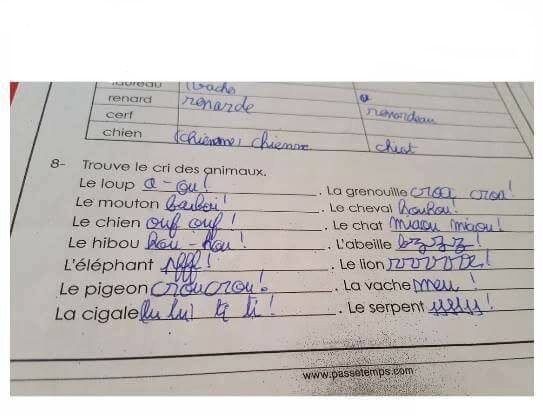 taureau (vache
renard renarde renardeau
cerf
chien (chienne) chienne chiot
8- Trouve le cri des animaux.
Le loup a-ou! . La grenouille croa croa!
Le mouton . Le cheval
Le chien ouf ouf! . Le chat miaou miaou!
Le hibou hou-hou! . L'abeille bzzzz!
L'éléphant pfff! . Le lion
Le pigeon croucrou! . La vache meu!
La cigale . Le serpent ssssss!
www.passetemps.com